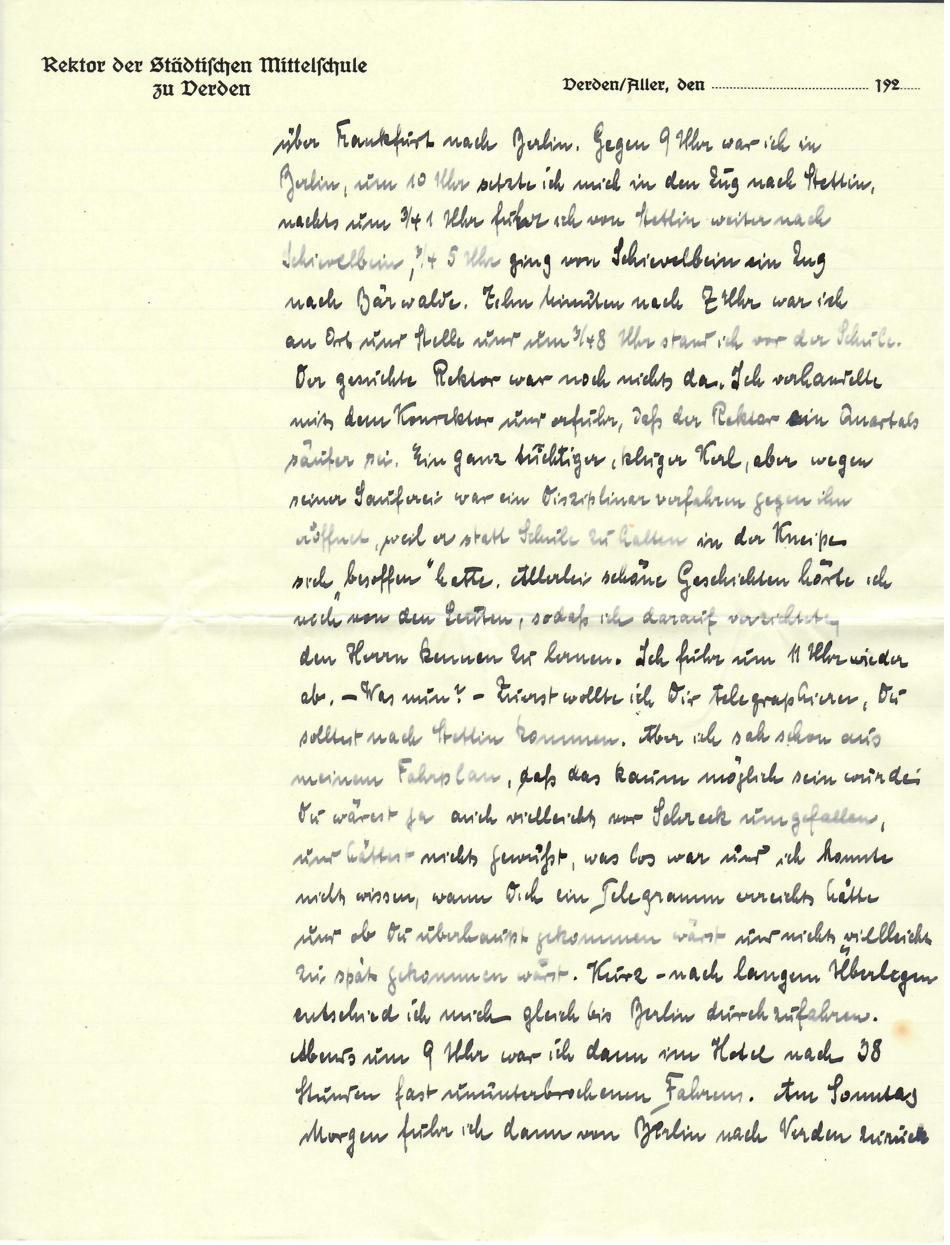 Rektor der Städtischen Mittelschule
zu Verden
Verden/Aller, den ........ 192....
über Frankfurt nach Berlin. Gegen 9 Uhr war ich in
Berlin, um 10 Uhr setzte ich mich in den Zug nach Stettin,
nachts um 3/4 1 Uhr fuhr ich von Stettin weiter nach
Schievelbein, 3/4 5 Uhr ging von Schievelbein ein Zug
nach Bärwalde. Zehn Minuten nach 7 Uhr war ich
an Ort und Stelle und um 3/4 8 Uhr stand ich vor der Schule.
Der gesuchte Rektor war noch nicht da. Ich verhandelte
mit dem Konrektor und erfuhr, daß der Rektor ein Quartals
säufer sei. Ein ganz tüchtiger, kluger Kerl, aber wegen
seiner Sauferei war ein Disziplinarverfahren gegen ihn
eröffnet, weil er statt Schule zu halten in der Kneipe
sich „besoffen“ hatte. Allerlei schöne Geschichten hörte ich
noch von den Leuten, sodaß ich darauf verzichtete,
den Herrn kennen zu lernen. Ich fuhr um 11 Uhr wieder
ab. – Was nun? – Zuerst wollte ich Dir telegraphieren, Du
solltest nach Stettin kommen. Aber ich sah schon aus
meinem Fahrplan, daß das kaum möglich sein würde;
Du wärest ja auch vielleicht vor Schreck umgefallen,
und hättest nicht gewußt, was los war und ich konnte
nicht wissen, wann Dich ein Telegramm erreicht hätte
und ob Du überhaupt gekommen wärst und nicht vielleicht
zu spät gekommen wärst. Kurz – nach langem Überlegen
entschied ich mich gleich bis Berlin durchzufahren.
Abends um 9 Uhr war ich dann im Hotel nach 38
Stunden fast ununterbrochenen Fahrens. Am Sonntag
Morgen fuhr ich dann von Berlin nach Verden zurück